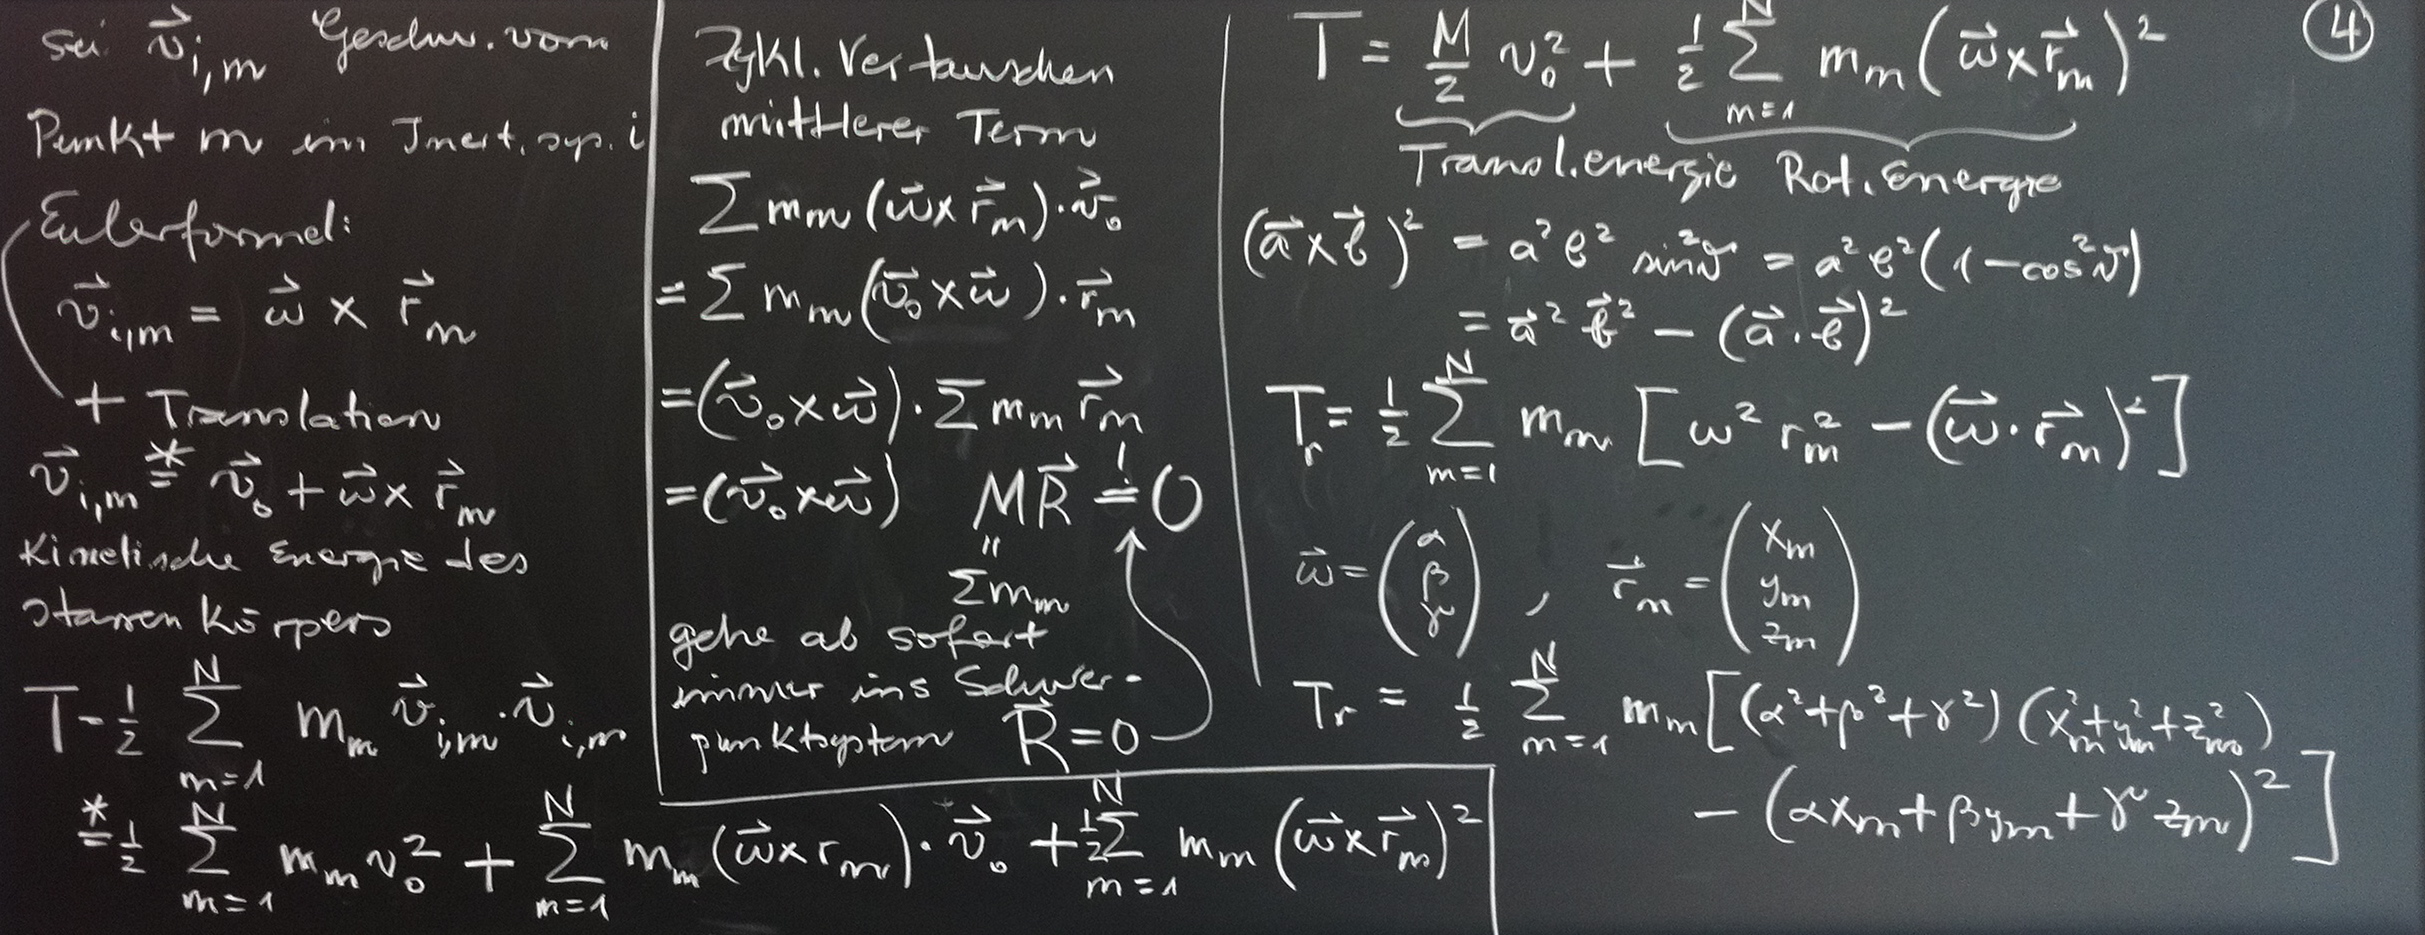 sei v⃗_{i,m} Geschw. vom
Punkt m im Inert.sys. i
Eulerformel:
v⃗_{i,m} = ω⃗ × r⃗_m
+ Translation
v⃗_{i,m} =* v⃗_0 + ω⃗ × r⃗_m
Kinetische Energie des
starren Körpers
T = 1/2 Σ_{m=1}^{N} m_m v⃗_{i,m} · v⃗_{i,m}
=* 1/2 Σ_{m=1}^{N} m_m v_0² + Σ_{m=1}^{N} m_m (ω⃗ × r_m) · v⃗_0 + 1/2 Σ_{m=1}^{N} m_m (ω⃗ × r⃗_m)²
Zykl. Vertauschen
mittlerer Term
Σ m_m (ω⃗ × r⃗_m) · v⃗_0
= Σ m_m (v⃗_0 × ω⃗) · r⃗_m
= (v⃗_0 × ω⃗) · Σ m_m r⃗_m
= (v⃗_0 × ω⃗) M R⃗ =! 0
"
Σ m_m
gehe ab sofort
immer ins Schwer-
punktsystem R⃗ = 0
④
T = M/2 v_0² + 1/2 Σ_{m=1}^{N} m_m (ω⃗ × r⃗_m)²
Transl.energie Rot.Energie
(a⃗ × b⃗)² = a² b² sin²ϑ = a² b² (1 - cos²ϑ)
= a⃗² b⃗² - (a⃗ · b⃗)²
T_r = 1/2 Σ_{m=1}^{N} m_m [ω² r_m² - (ω⃗ · r⃗_m)²]
ω⃗ = (α β γ), r⃗_m = (x_m y_m z_m)
T_r = 1/2 Σ_{m=1}^{N} m_m [(α² + β² + γ²) (x_m² + y_m² + z_m²)
- (αx_m + βy_m + γz_m)²]